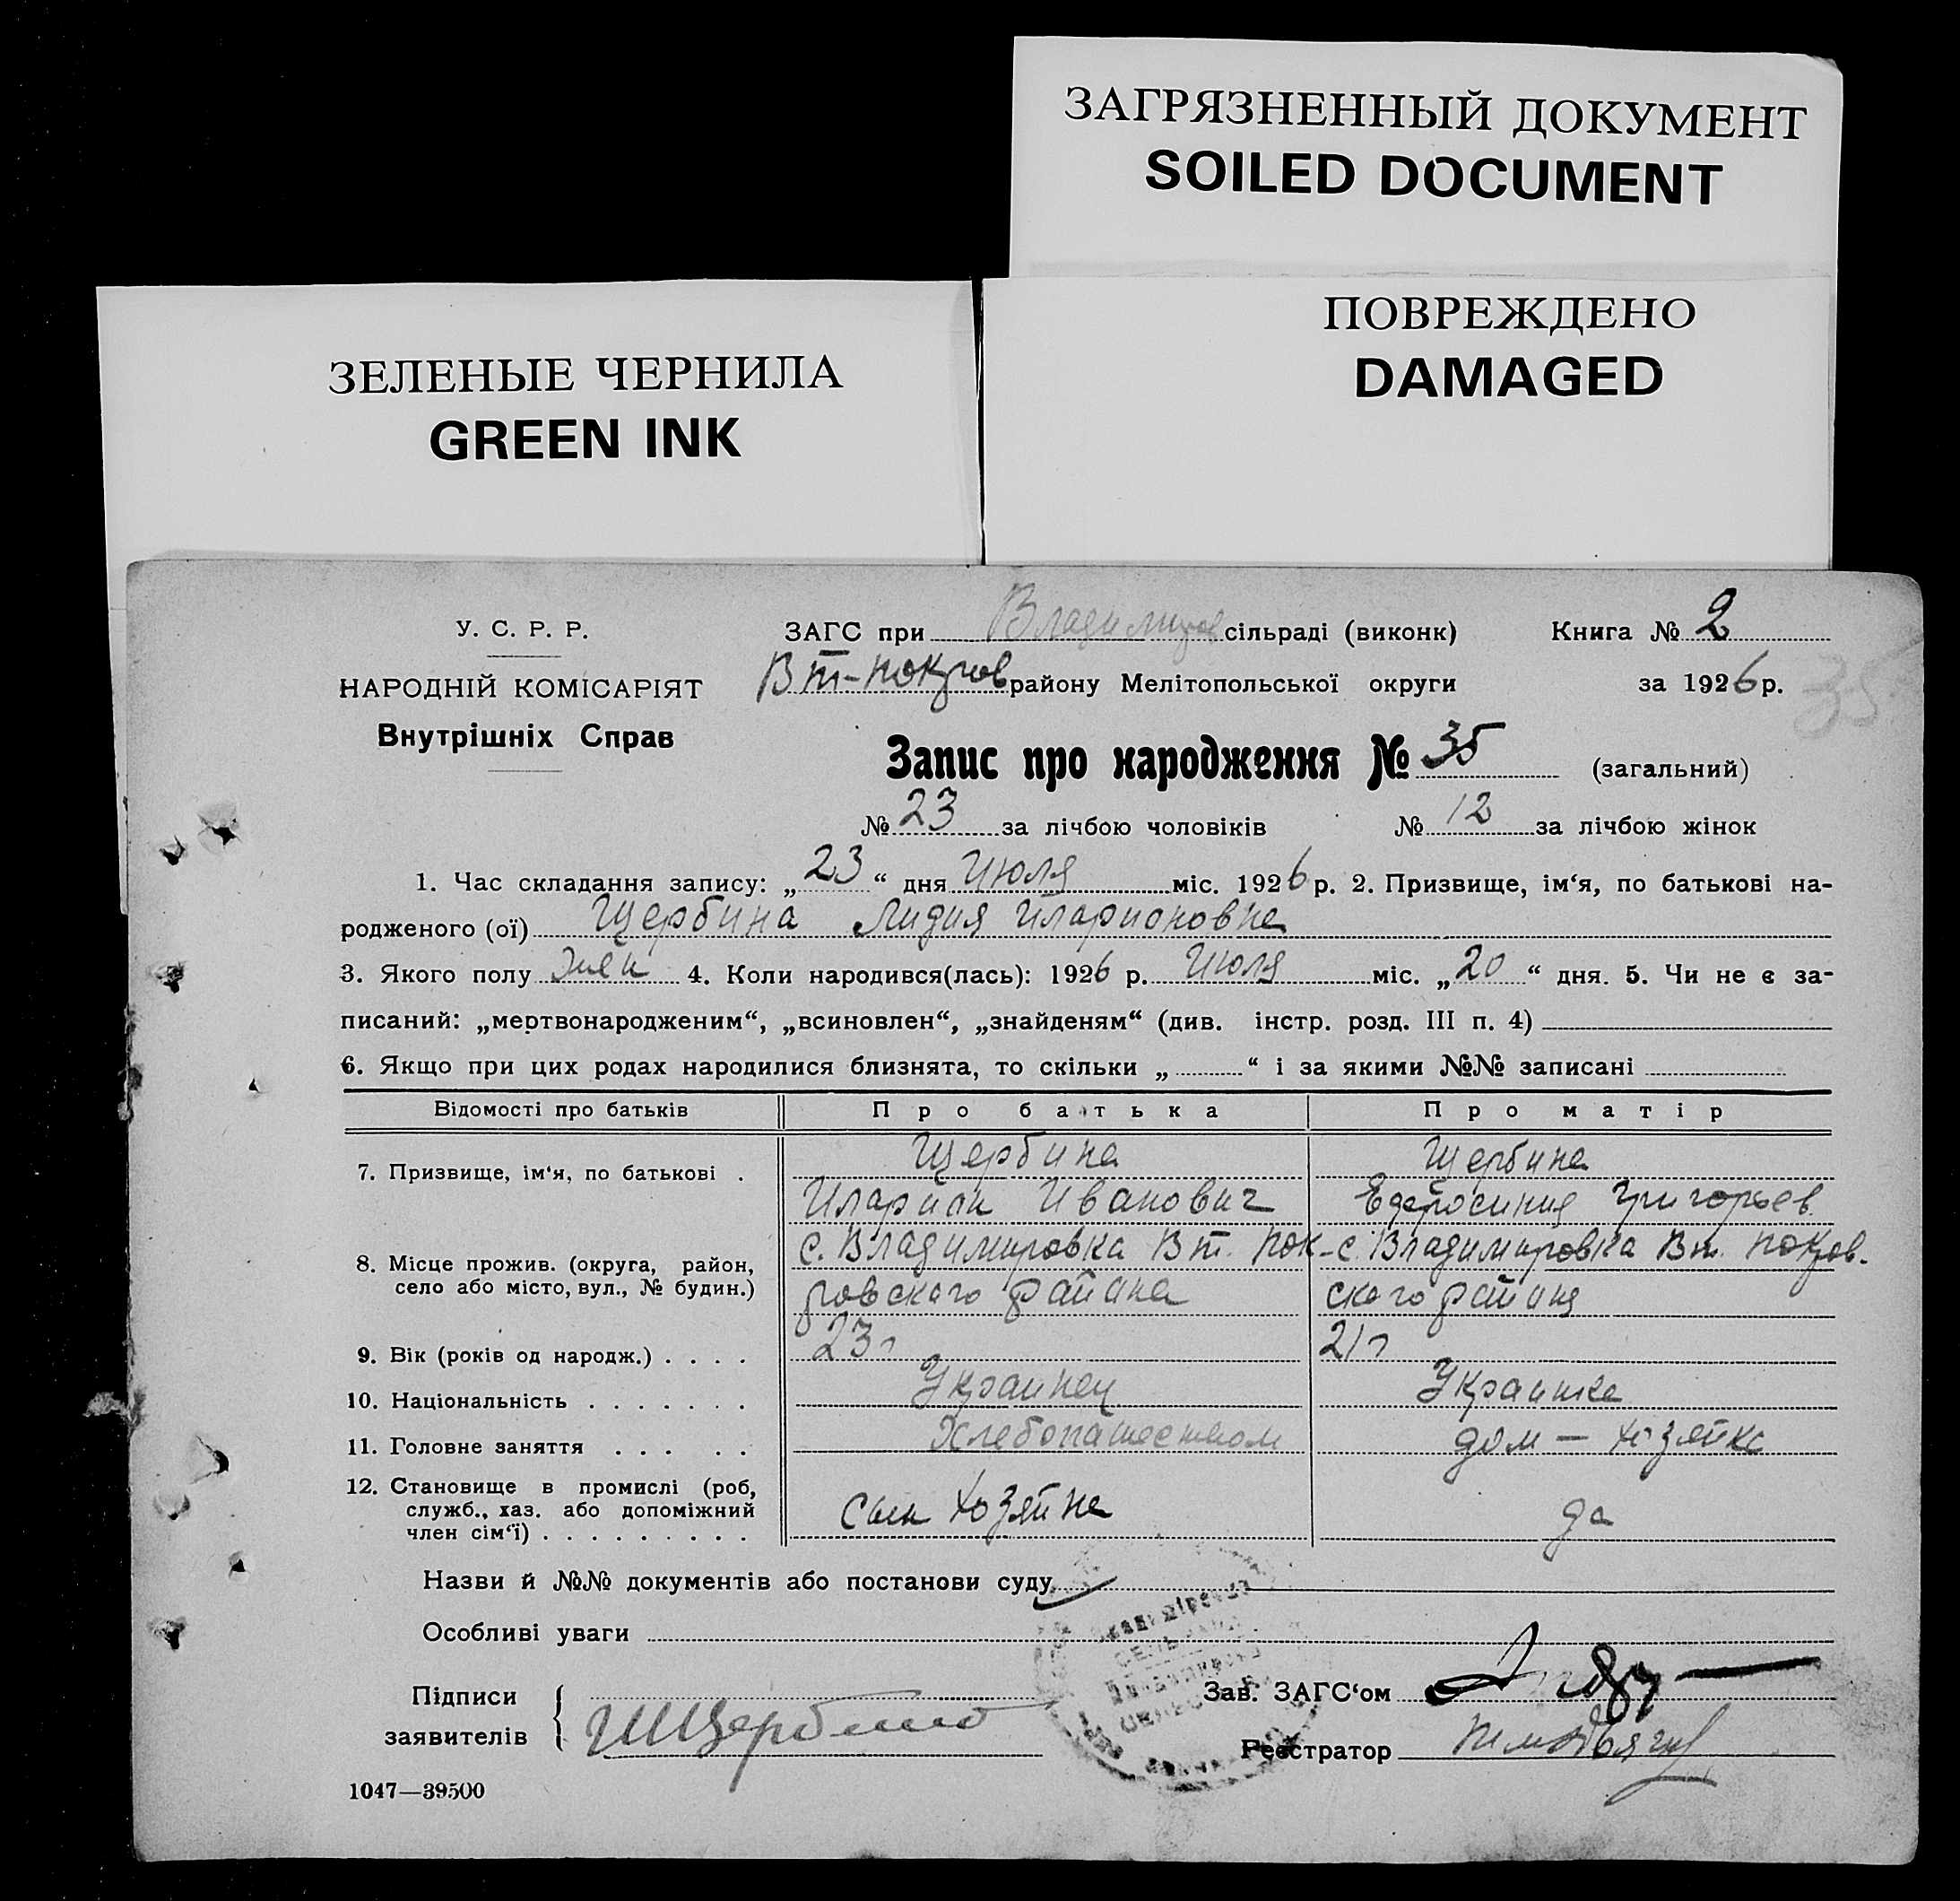 ЗАГРЯЗНЕННЫЙ ДОКУМЕНТ
SOILED DOCUMENT
ПОВРЕЖДЕНО
DAMAGED
ЗЕЛЕНЫЕ ЧЕРНИЛА
GREEN INK
У. С. Р. Р.
НАРОДНІЙ КОМІСАРІЯТ
Внутрішніх Справ
ЗАГС при Владимиров сільраді (виконк) Книга № 2
Вт-покров району Мелітопольської округи за 1926 р.
35
Запис про народження № 35 (загальний)
№ 23 за лічбою чоловіків № 12 за лічбою жінок
1. Час складання запису: „23“ дня Июля міс. 1926 р. 2. Призвище, ім‘я, по батькові на-
родженого (ої) Щербина Лидия Иларионовна
3. Якого полу жен 4. Коли народився(лась): 1926 р. Июля міс. „20“ дня. 5. Чи не є за-
писаний: „мертвонародженим“, „всиновлен“, „знайденям“ (див. інстр. розд. III п. 4)
6. Якщо при цих родах народилися близнята, то скільки „ “ і за якими №№ записані
Відомості про батьків Про батька Про матір
7. Призвище, ім‘я, по батькові . Щербина Щербина
Иларион Иванович Ефросиния Григорьев.
8. Місце прожив. (округа, район, село або місто, вул., № будин.) с. Владимировка Вт. Пок- с. Владимировка Вт. Покров.
ровского района ского района
9. Вік (років од народж.) . . . . 23 г 21 г
10. Національність . . . . . . . Украинец Украинка
11. Головне заняття . . . . . Хлебопашеством дом — хозяйка
12. Становище в промислі (роб,
служб., хаз. або допоміжний
член сім‘ї) . . . . . . . . . сын хозяина да
Назви й №№ документів або постанови суду
Особливі уваги
Підписи
заявителів
Щербина
Зав. ЗАГС‘ом
Реєстратор
1047—39500